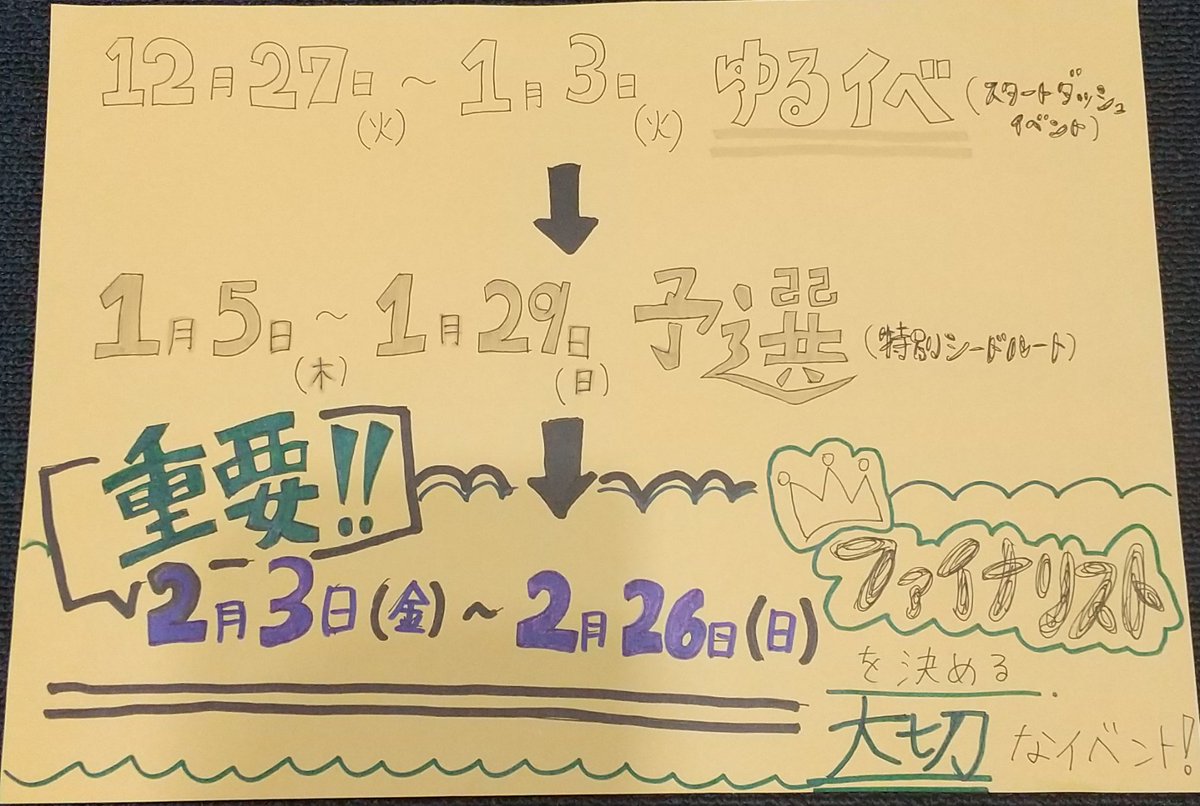 12月27日(火)～1月3日(火) ゆるイベ(スタートダッシュイベント)
1月5日(木)～1月29日(日) 予選(特別シードルート)
重要!!
2月3日(金)～2月26日(日)
ファイナリスト
を決める
大切なイベント!